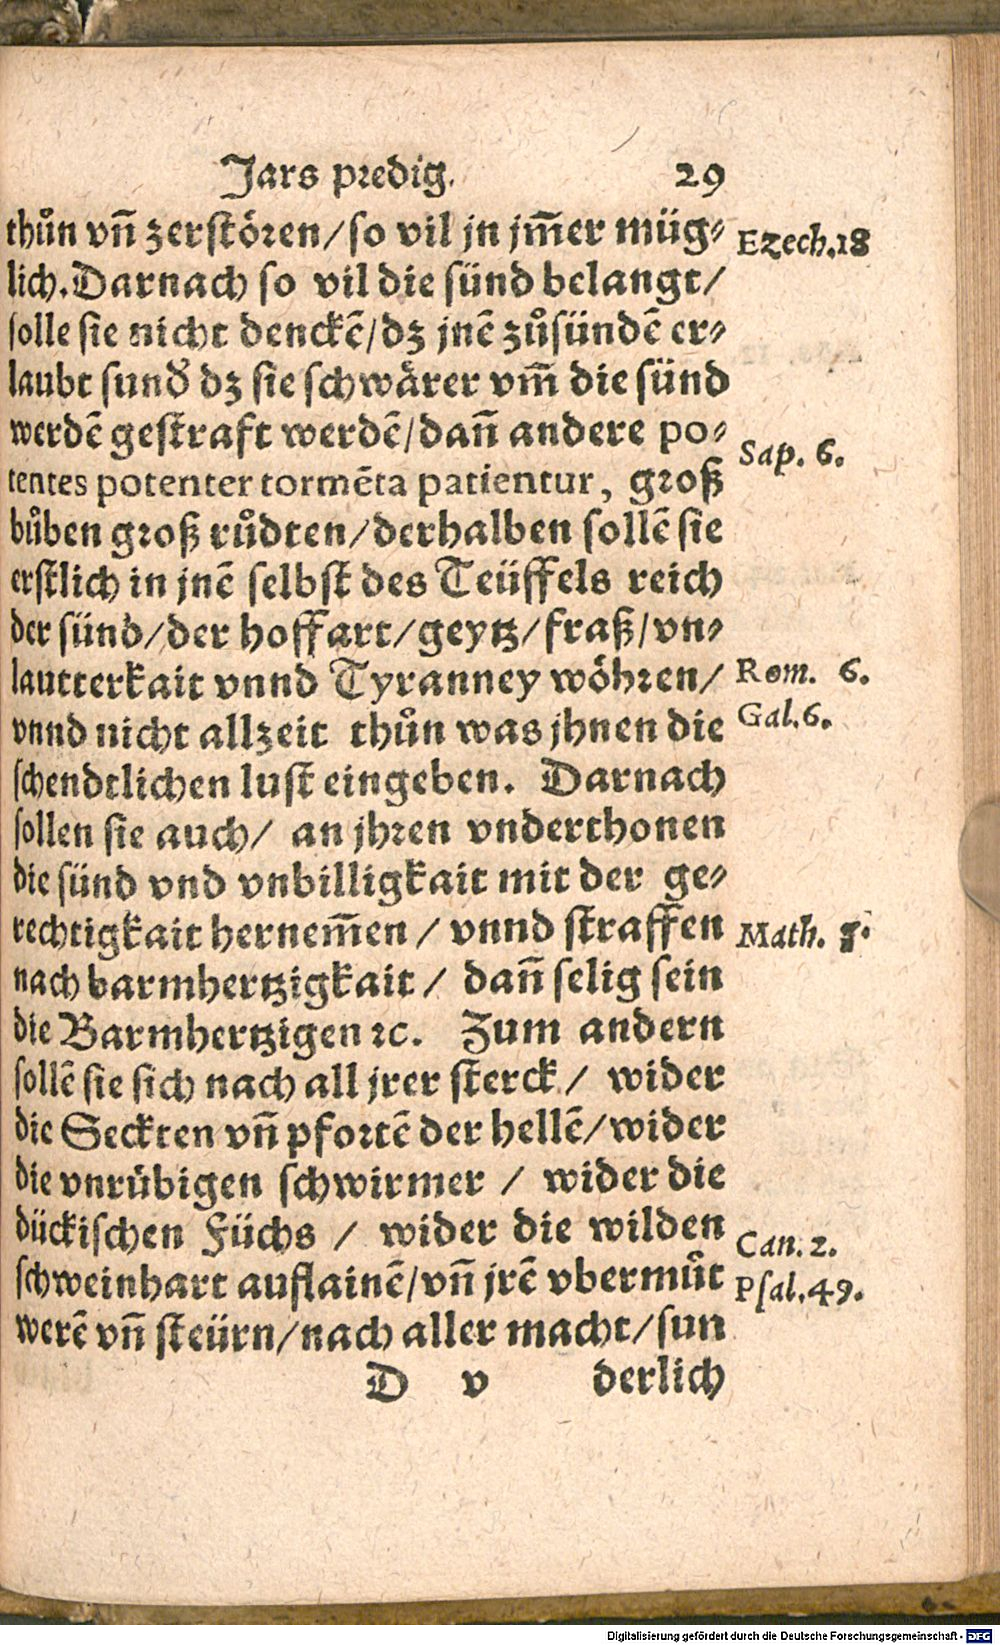 Jars predig. 29
thůn vñ zerstören/so vil jn jm̃er müg⸗
Ezech.18
lich. Darnach so vil die sünd belangt/
solle sie nicht denckē/dz jnē zůsündē er⸗
laubt sund' dz sie schwärer vm̃ die sünd
werdē gestraft werdē/dañ andere po⸗
Sap. 6.
tentes potenter tormēta patientur, groß
bůben groß růdten/derhalben sollē sie
erstlich in jnē selbst des Teüffels reich
der sünd/der hoffart/geytz/fraß/vn⸗
lautterkait vnnd Tyranney wöhren/
Rom. 6.
vnnd nicht allzeit thůn was jhnen die
Gal.6.
schendtlichen lust eingeben. Darnach
sollen sie auch/ an jhren vnderthonen
die sünd vnd vnbilligkait mit der ge⸗
rechtigkait hernem̃en / vnnd straffen
Math. 5.
nach barmhertzigkait / dañ selig sein
die Barmhertzigen ꝛc. Zum andern
sollē sie sich nach all jrer sterck / wider
die Seckten vñ pfortē der hellē/wider
die vnrübigen schwirmer / wider die
dückischen Füchs / wider die wilden
Can. 2.
schweinhart auflainē/vñ jrē vbermůt
Psal.49.
werē vñ steürn/nach aller macht/sun
D v derlich
Digitalisierung gefördert durch die Deutsche Forschungsgemeinschaft - DFG